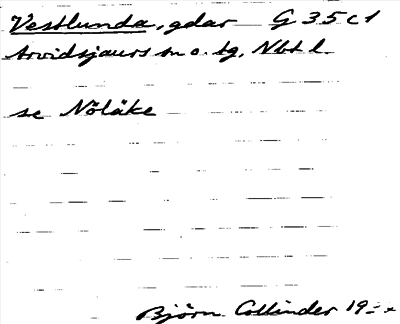 Vestlunda, gdar G 35 c 1
Arvidsjaurs sn o. tg, Nbt l.
se Nölåke
Björn Collinder 19